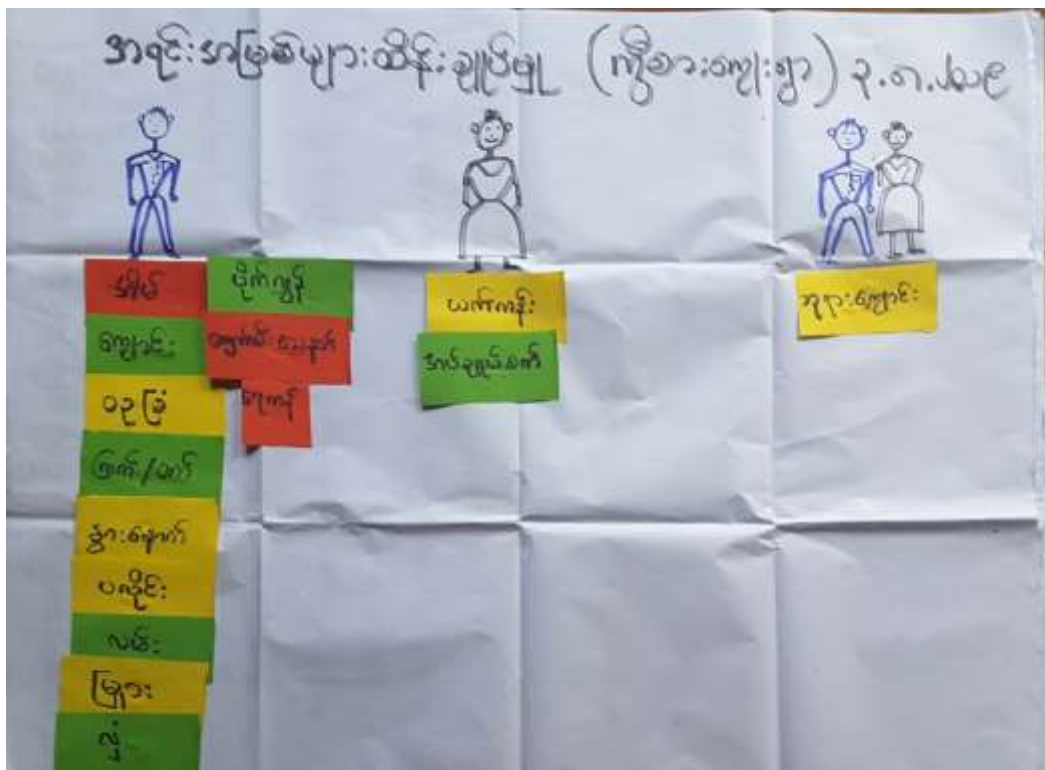 အရင်းအမြစ်များထိန်းချုပ်မှု (ကွီစားကျေးရွာ) ၃.၈.၂၀၁၉
အိမ်
ကျောင်း
ဝဥခြံ
နွားနောက်
ပလိုင်း
လမ်း
မြှား
လှံ
ပိုက်ကွန်
ရေကန်
ယက်ကန်း
အပ်ချုပ်စက်
ဘုရားကျောင်း